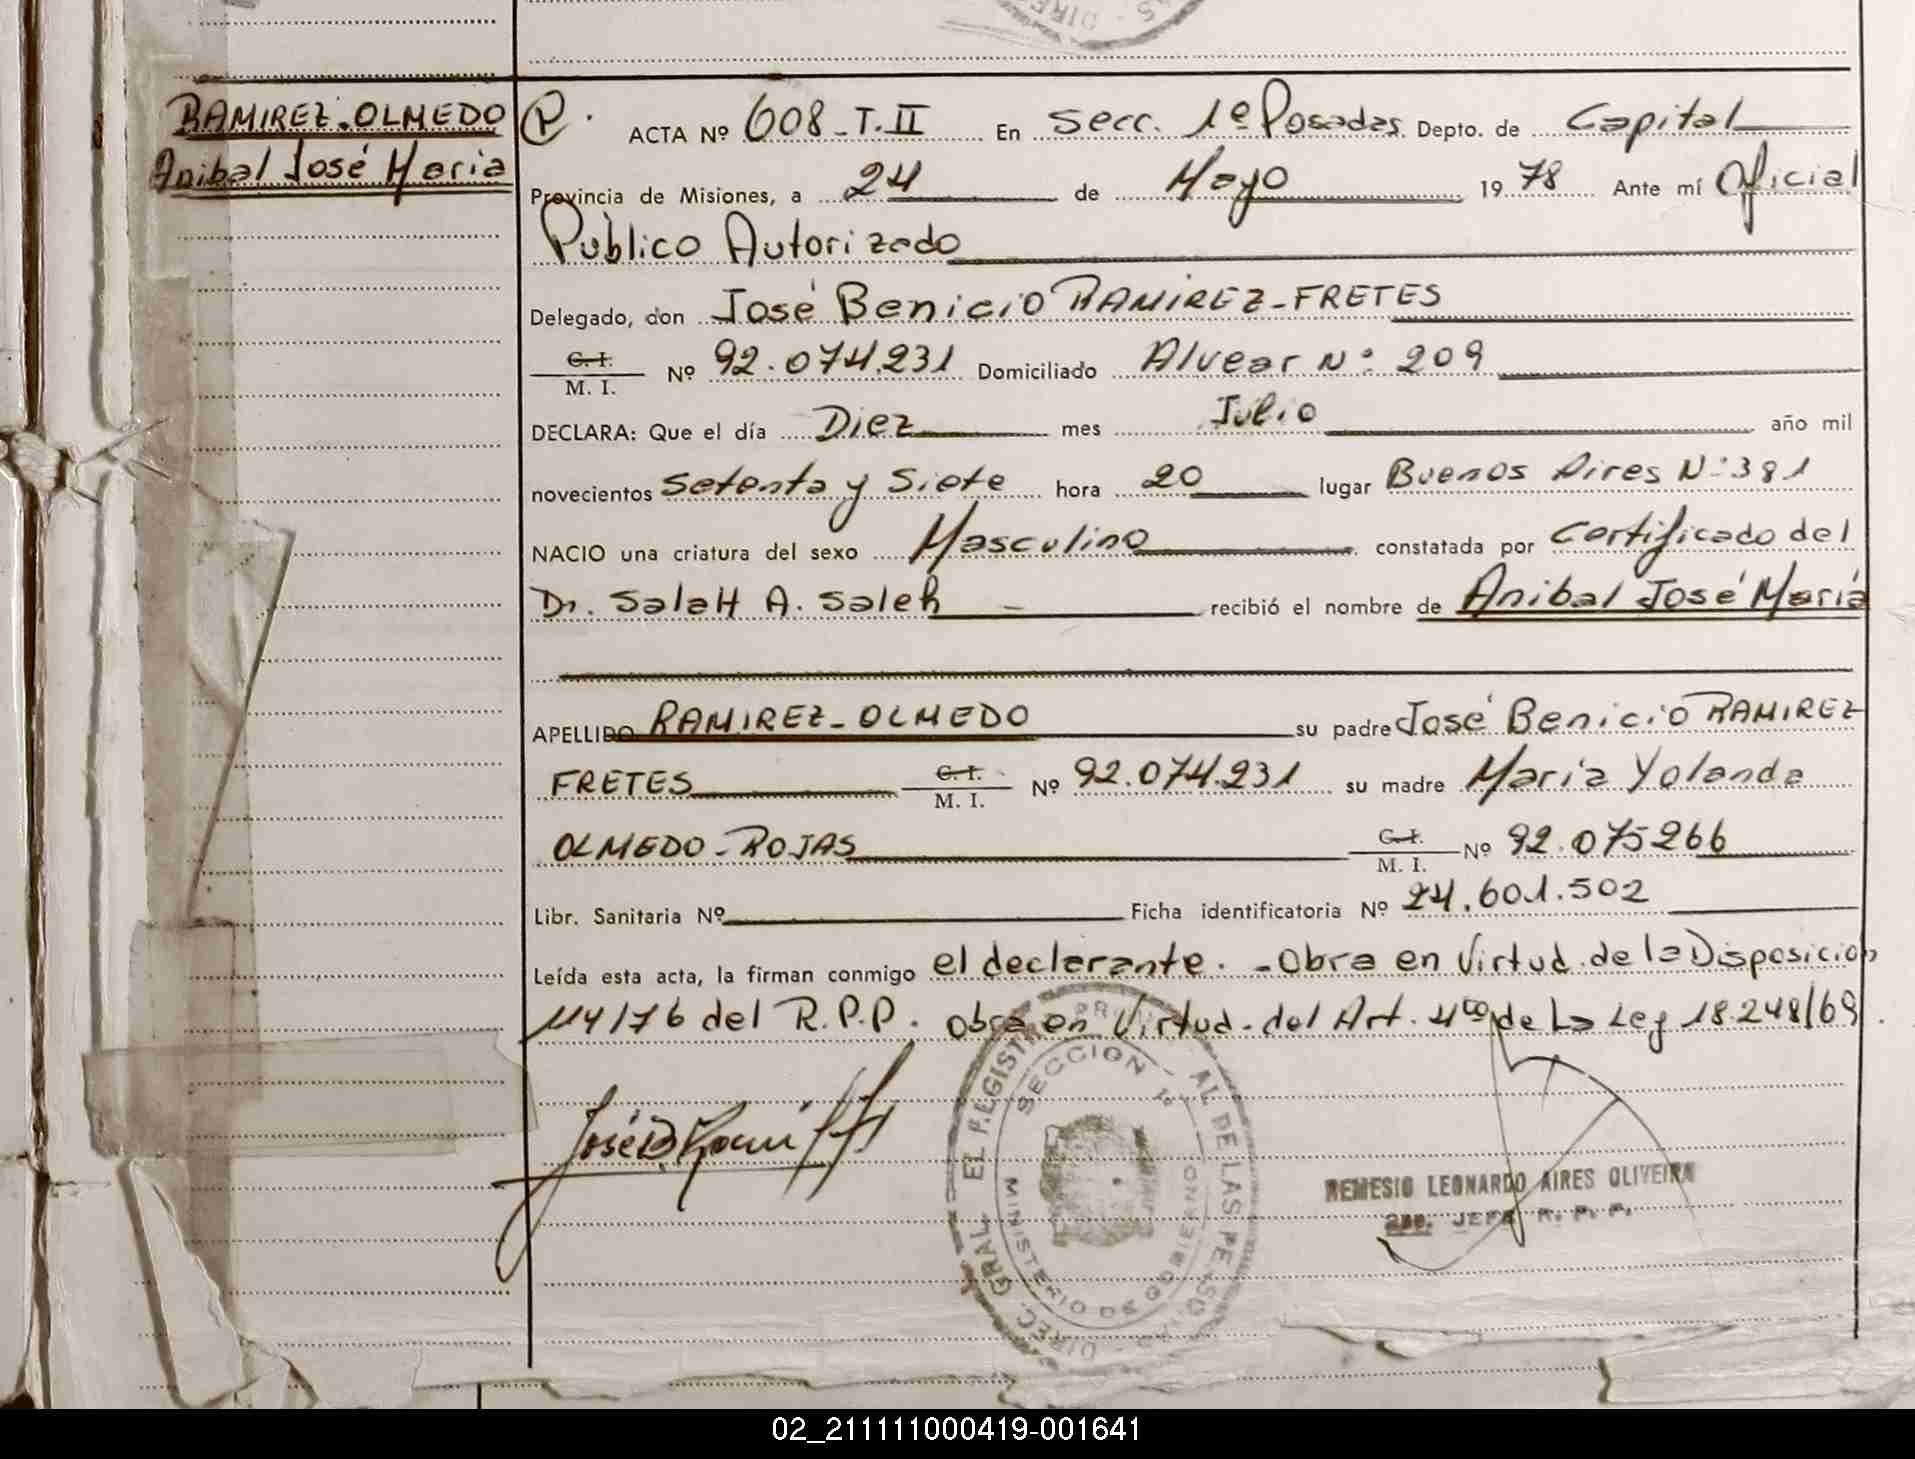 RAMIREZ-OLMEDO
Anibal José María
P. ACTA Nº 608-T.II En Secc. 1º Posadas Depto. de Capital
Provincia de Misiones, a 24 de Mayo 1978 Ante mí Oficial
Público Autorizado
Delegado, don José Benicio RAMIREZ-FRETES
C. I. M. I. Nº 92.074.231 Domiciliado Alvear Nº 209
DECLARA: Que el día Diez mes Julio año mil
novecientos setenta y Siete hora 20 lugar Buenos Aires Nº 381
NACIO una criatura del sexo Masculino constatada por Certificado del
Dr. Salah A. Saleh recibió el nombre de Anibal José María
APELLIDO RAMIREZ-OLMEDO su padre José Benicio RAMIREZ
FRETES C. I. M. I. Nº 92.074.231 su madre María Yolanda
OLMEDO-ROJAS C. I. M. I. Nº 92.075266
Libr. Sanitaria Nº Ficha identificatoria Nº 24.601.502
Leída esta acta, la firman conmigo el declarante. -Obra en Virtud de la Disposición
114/76 del R.P.P. obra en Virtud del Art. 4to de La Ley 18.248/69.
José B Rami
SECCION 1ª
MINISTERIO DE GOBIERNO
NEMESIO LEONARDO AIRES OLIVEIRA
JEFE R. P. P.
02_211111000419-001641